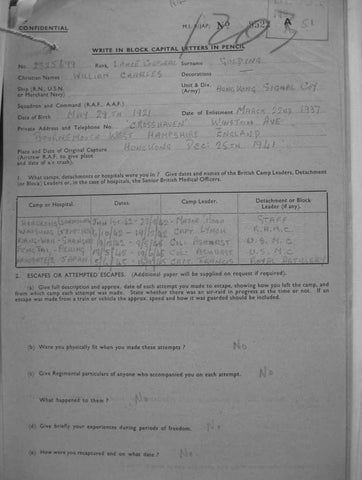 CONFIDENTIAL
M.I. 9/JAP/ No
A
WRITE IN BLOCK CAPITAL LETTERS IN PENCIL
No. Rank, LANCE CORPORAL Surname GOLDING
Christian Names WILLIAM CHARLES Decorations
Ship (R.N., U.S.N. or Merchant Navy) Unit & Div. (Army) HONG KONG SIGNAL COY
Squadron and Command (R.A.F., A.A.F.)
Date of Birth MAY 29TH 1921 Date of Enlistment MARCH 22ND 1937
Private Address and Telephone No. "CROSSHAVEN" WINSTON AVE
BOURNEMOUTH WEST HAMPSHIRE ENGLAND
Place and Date of Original Capture HONGKONG DEC 25TH 1941
(Aircrew R.A.F. to give place
and date of a/c crash).
1. What camps, detachments or hospitals were you in? Give dates and names of the British Camp Leaders, Detachment
(or Block) Leaders or, in the case of hospitals, the Senior British Medical Officers.
Camp or Hospital. Dates. Camp Leader. Detachment or Block Leader (if any).
HONGKONG MAJOR STAFF
CAPT LYNCH R.A.M.C
SHANGHAI COL ASHURST U.S.M.C
PEKING COL ASHURST U.S.M.C
JAPAN CAPT FRANCIS ROYAL ARTILLERY
2. ESCAPES OR ATTEMPTED ESCAPES. (Additional paper will be supplied on request if required).
(a) Give full description and approx. date of each attempt you made to escape, showing how you left the camp, and
from which camp each attempt was made. State whether there was an air-raid in progress at the time or not. If an
escape was made from a train or vehicle the approx. speed and how it was guarded should be included.
(b) Were you physically fit when you made these attempts? No
(c) Give Regimental particulars of anyone who accompanied you on each attempt. No
What happened to them? No
(d) Give briefly your experiences during periods of freedom. No
(e) How were you recaptured and on what date? No.